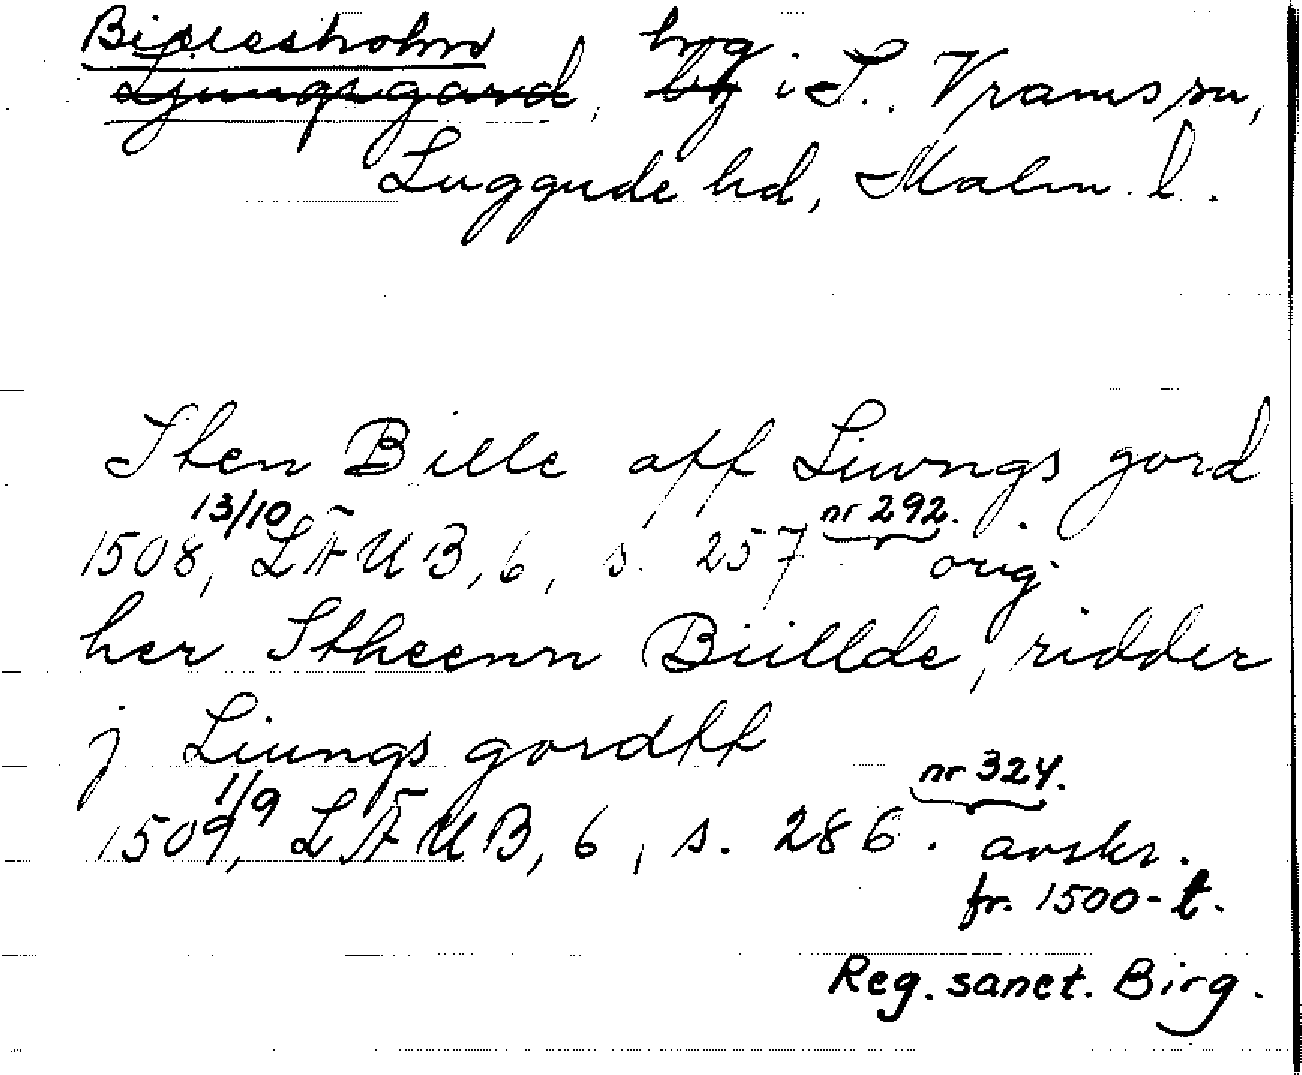 Bjuvsholm hög.
Ljungsgård, by i S. Vrams sn,
Luggude hd, Malm. l.
Sten Bille aff Liwngs gord
13/10 nr 292.
1508, LÄUB, 6, s. 257 orig.
her Stheenn Büllde, ridder
j Liungs gordtt
1/9 nr 324.
1509, LÄUB, 6, s. 286. avskr.
fr. 1500-t.
Reg. sanct. Birg.